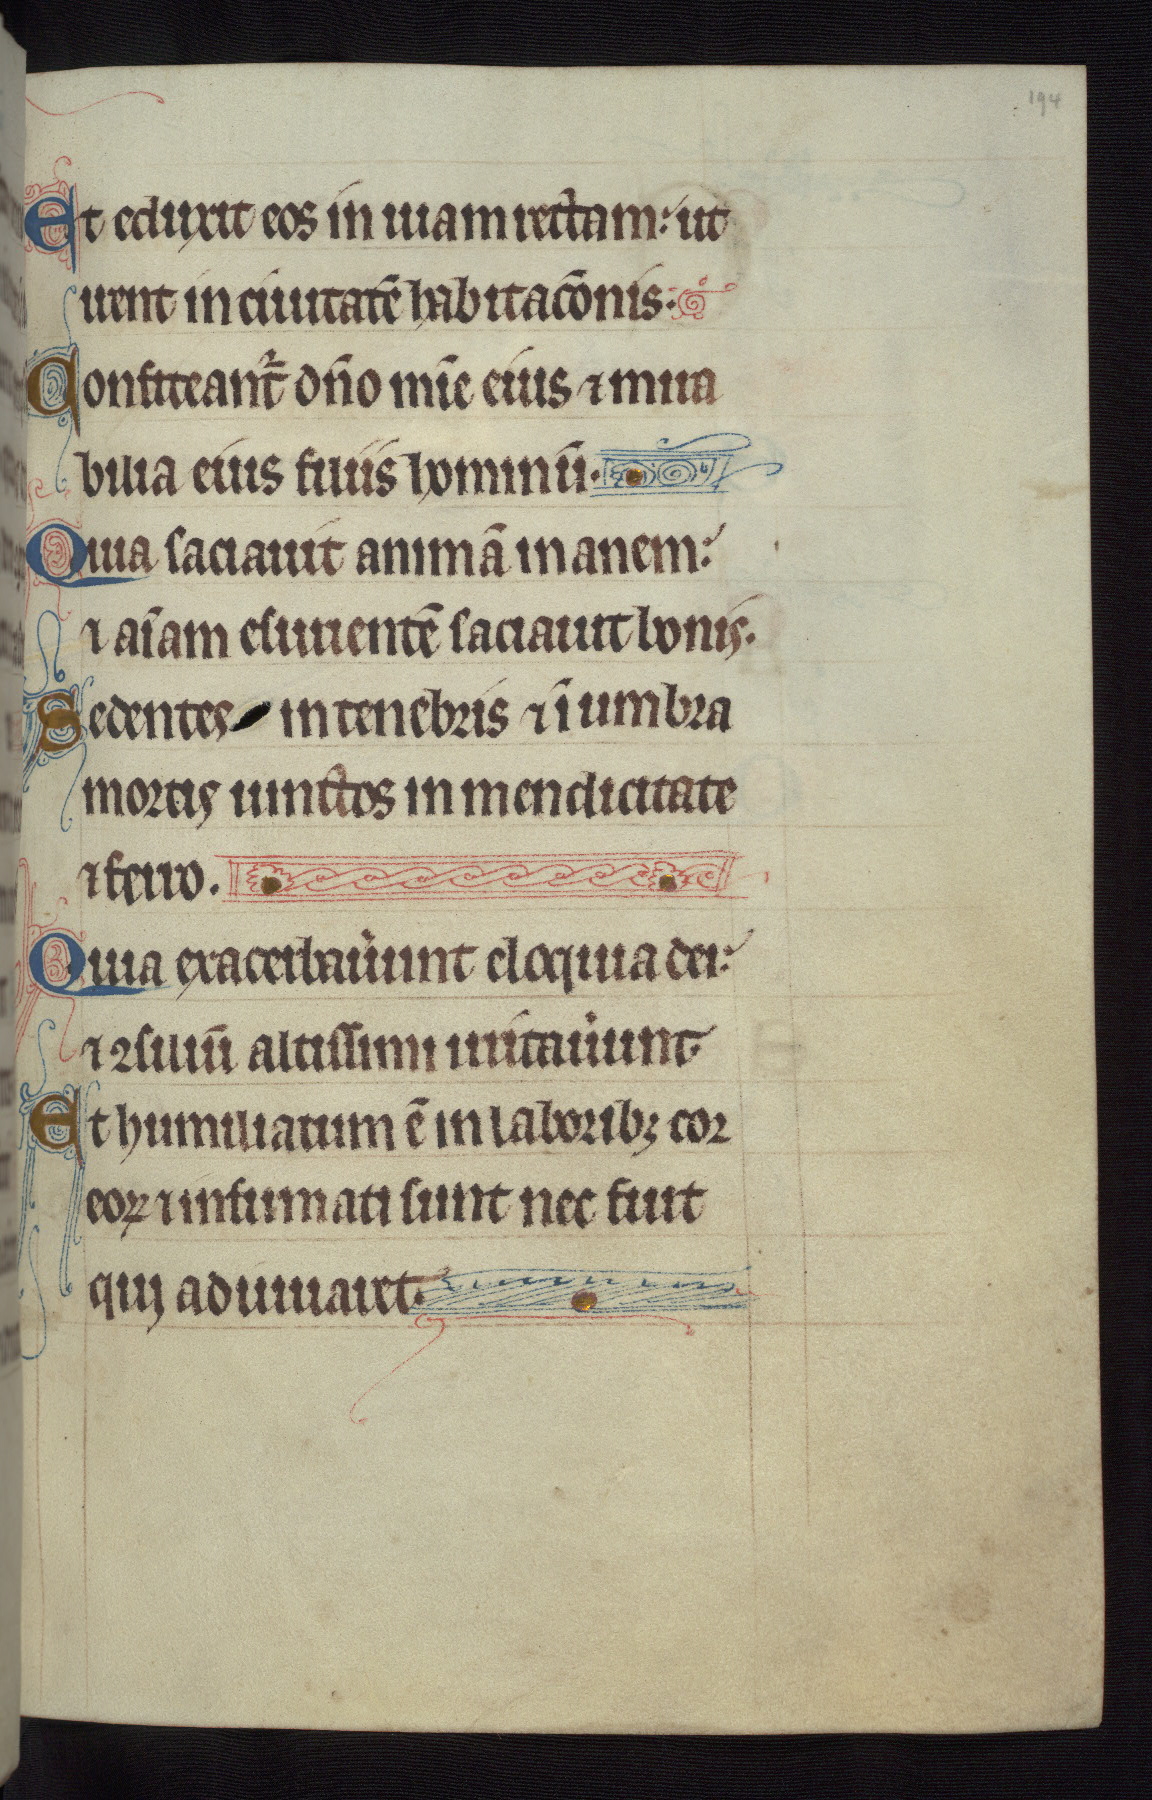 194
Et eduxit eos in uiam rectam: ut
irent in ciuitatē habitacōnis:
Confiteant᷑ dn̄o mīe eius ⁊ mira
bilia eius filiis hominū.
Quia saciauit animā inanem:
⁊ aīam esurientē saciauit bonis.
Sedentes in tenebris ⁊ ī umbra
mortis uinctos in mendicitate
⁊ ferro.
Quia exacerbauͥunt eloquia dei:
⁊ ꝯsiliū altissimi irritauͥunt
Et humiliatum ē in laboribꝫ cor
eoꝝ ⁊ infirmati sunt nec fuit
qui adiuuaret.